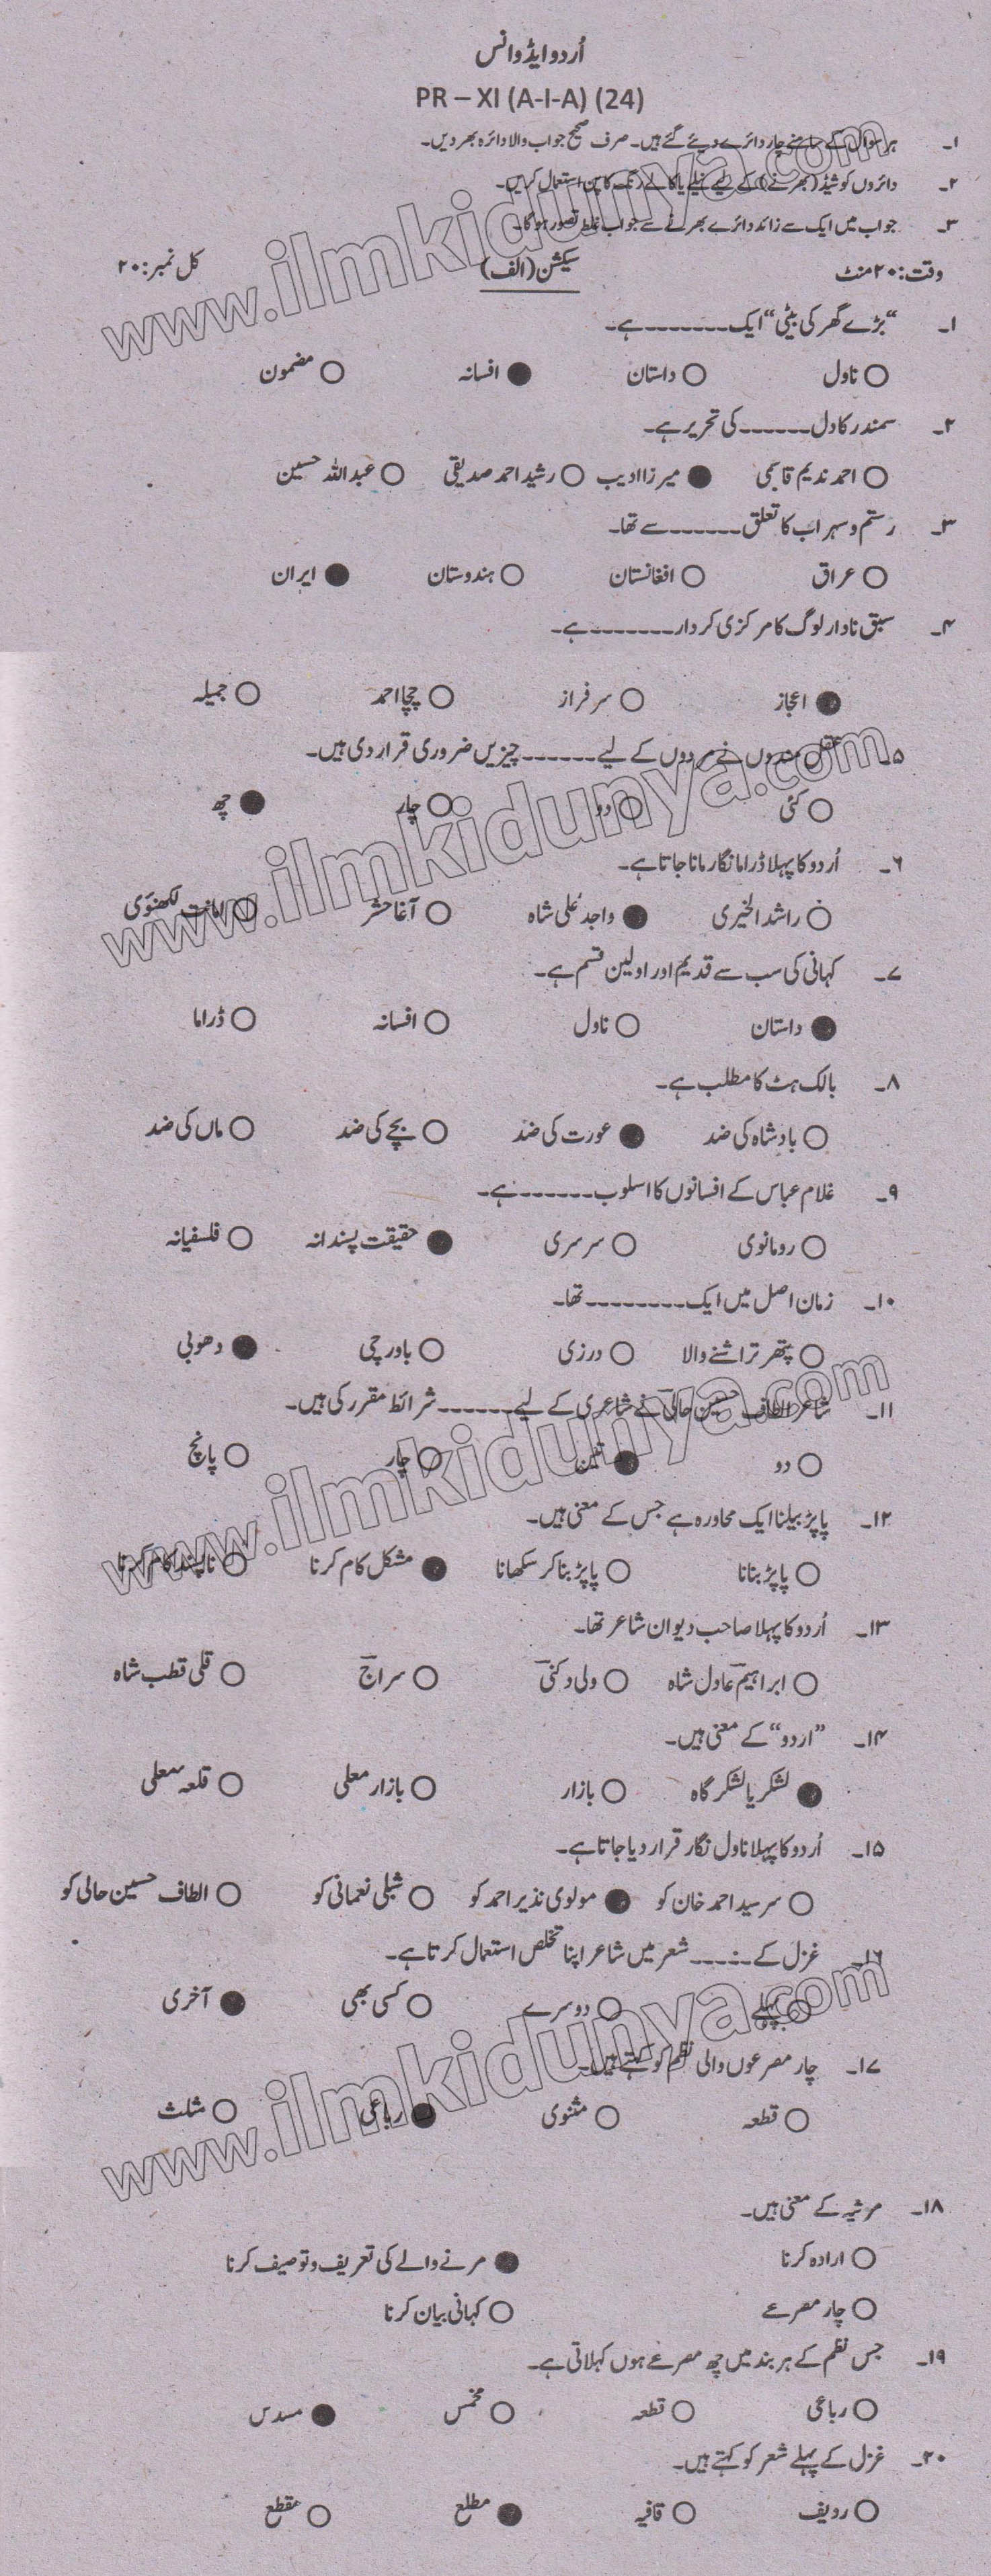 اُردو ایڈوانس
PR – XI (A-I-A) (24)
۱۔ ہر سوال کے سامنے چار دائرے دیئے گئے ہیں۔ صرف صحیح جواب والا دائرہ بھر دیں۔
۲۔ دائروں کو شیڈ (بھرنے) کے لیے نیلے یا کالے رنگ کا پن استعمال کریں۔
۳۔ جواب میں ایک سے زائد دائرے بھرنے سے جواب غلط تصور ہوگا۔
وقت: ۲۰ منٹ سیکشن (الف) کل نمبر: ۲۰
۱۔ “بڑے گھر کی بیٹی“ ایک ------- ہے۔
○ ناول ○ داستان ● افسانہ ○ مضمون
۲۔ سمندر کا دل ------ کی تحریر ہے۔
○ احمد ندیم قاسمی ● میرزا ادیب ○ رشید احمد صدیقی ○ عبداللہ حسین
۳۔ رستم و سہراب کا تعلق ------ سے تھا۔
○ عراق ○ افغانستان ○ ہندوستان ● ایران
۴۔ سبق نادار لوگ کا مرکزی کردار -------- ہے۔
● اعجاز ○ سرفراز ○ چچا احمد ○ جمیلہ
۵۔ عقل مندوں نے مردوں کے لیے ------ چیزیں ضروری قرار دی ہیں۔
○ کئی ○ دو ○ چار ● چھ
۶۔ اُردو کا پہلا ڈراما نگار مانا جاتا ہے۔
○ راشد الخیری ● واجد علی شاہ ○ آغا حشر ○ امانت لکھنوی
۷۔ کہانی کی سب سے قدیم اور اولین قسم ہے۔
● داستان ○ ناول ○ افسانہ ○ ڈراما
۸۔ بالک ہٹ کا مطلب ہے۔
○ بادشاہ کی ضد ● عورت کی ضد ○ بچے کی ضد ○ ماں کی ضد
۹۔ غلام عباس کے افسانوں کا اسلوب ------- ہے۔
○ رومانوی ○ سرسری ● حقیقت پسندانہ ○ فلسفیانہ
۱۰۔ زمان اصل میں ایک --------- تھا۔
○ پتھر تراشنے والا ○ درزی ○ باورچی ● دھوبی
۱۱۔ شاعر الطاف حسین حالی نے شاعری کے لیے ------- شرائط مقرر کی ہیں۔
○ دو ● تین ○ چار ○ پانچ
۱۲۔ پاپڑ بیلنا ایک محاورہ ہے جس کے معنی ہیں۔
○ پاپڑ بنانا ○ پاپڑ بنا کر سکھانا ● مشکل کام کرنا ○ ناپسند کام کرنا
۱۳۔ اُردو کا پہلا صاحب دیوان شاعر تھا۔
○ ابراہیم عادل شاہ ○ ولی دکنی ○ سراج ○ قلی قطب شاہ
۱۴۔ “اردو“ کے معنی ہیں۔
● لشکر یا لشکر گاہ ○ بازار ○ بازار معلی ○ قلعہ معلی
۱۵۔ اُردو کا پہلا ناول نگار قرار دیا جاتا ہے۔
○ سر سید احمد خان کو ● مولوی نذیر احمد کو ○ شبلی نعمانی کو ○ الطاف حسین حالی کو
۱۶۔ غزل کے ------ شعر میں شاعر اپنا تخلص استعمال کرتا ہے۔
○ پہلے ○ دوسرے ○ کسی بھی ● آخری
۱۷۔ چار مصرعوں والی نظم کو کہتے ہیں۔
○ قطعہ ○ مثنوی ● رباعی ○ مثلث
۱۸۔ مرثیہ کے معنی ہیں۔
○ ارادہ کرنا ● مرنے والے کی تعریف و توصیف کرنا
○ چار مصرعے ○ کہانی بیان کرنا
۱۹۔ جس نظم کے ہر بند میں چھ مصرعے ہوں کہلاتی ہے۔
○ رباعی ○ قطعہ ○ مخمس ● مسدس
۲۰۔ غزل کے پہلے شعر کو کہتے ہیں۔
○ ردیف ○ قافیہ ● مطلع ○ مقطع
www.ilmkidunya.com
www.ilmkidunya.com
www.ilmkidunya.com
www.ilmkidunya.com